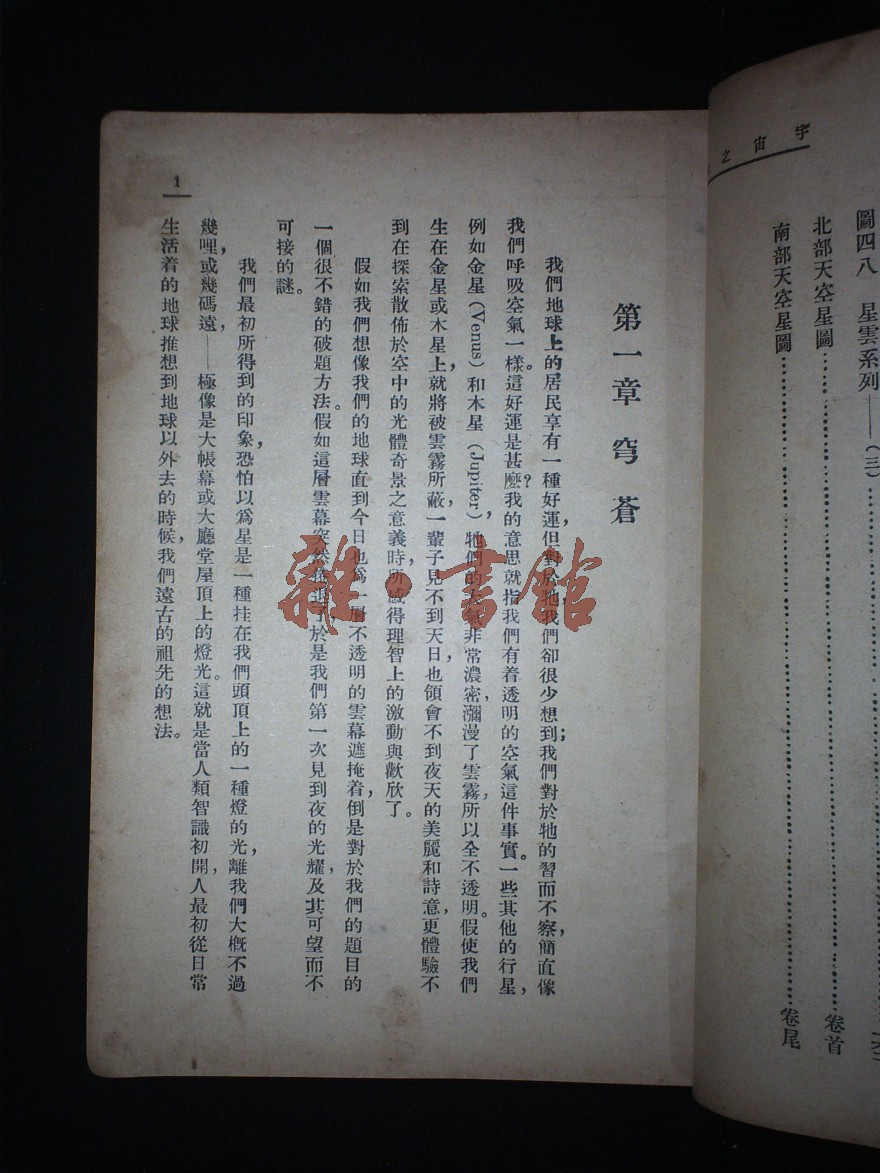 宇宙之
圖四八 星雲系列——(三)
北部天空星圖 卷首
南部天空星圖 卷尾
第一章 穹蒼
我們地球上的居民享有一種好運，但對於牠，我們卻很少想到；我們對於牠的習而不察，簡直像
我們呼吸空氣一樣。這好運是甚麽？我的意思就指我們有着透明的空氣這件事實。一些其他的行星，
例如金星(Venus)和木星(Jupiter)，牠們的大氣非常濃密，瀰漫了雲霧，所以全不透明。假使我們
生在金星或木星上，就將被雲霧所蔽，一輩子見不到天日，也領會不到夜天的美麗和詩意，更體驗不
到在探索散佈於空中的光體奇景之意義時，所感得理智上的激動與歡欣了。
假如我們想像我們的地球直到今日也爲一層不透明的雲幕遮掩着，倒是對於我們的題目的
一個很不錯的破題方法。假如這層雲幕突然捲退了，於是我們第一次見到夜的光耀，及其可望而不
可接的謎。
我們最初所得到的印象，恐怕以爲星是一種挂在我們頭頂上的一種燈的光，離我們大槪不過
幾哩，或幾碼遠——極像是大帳幕或大廳堂屋頂上的燈光。這就是當人類智識初開，人最初從日常
生活着的地球推想到地球以外去的時候，我們遠古的祖先的想法。
1
雜·書館